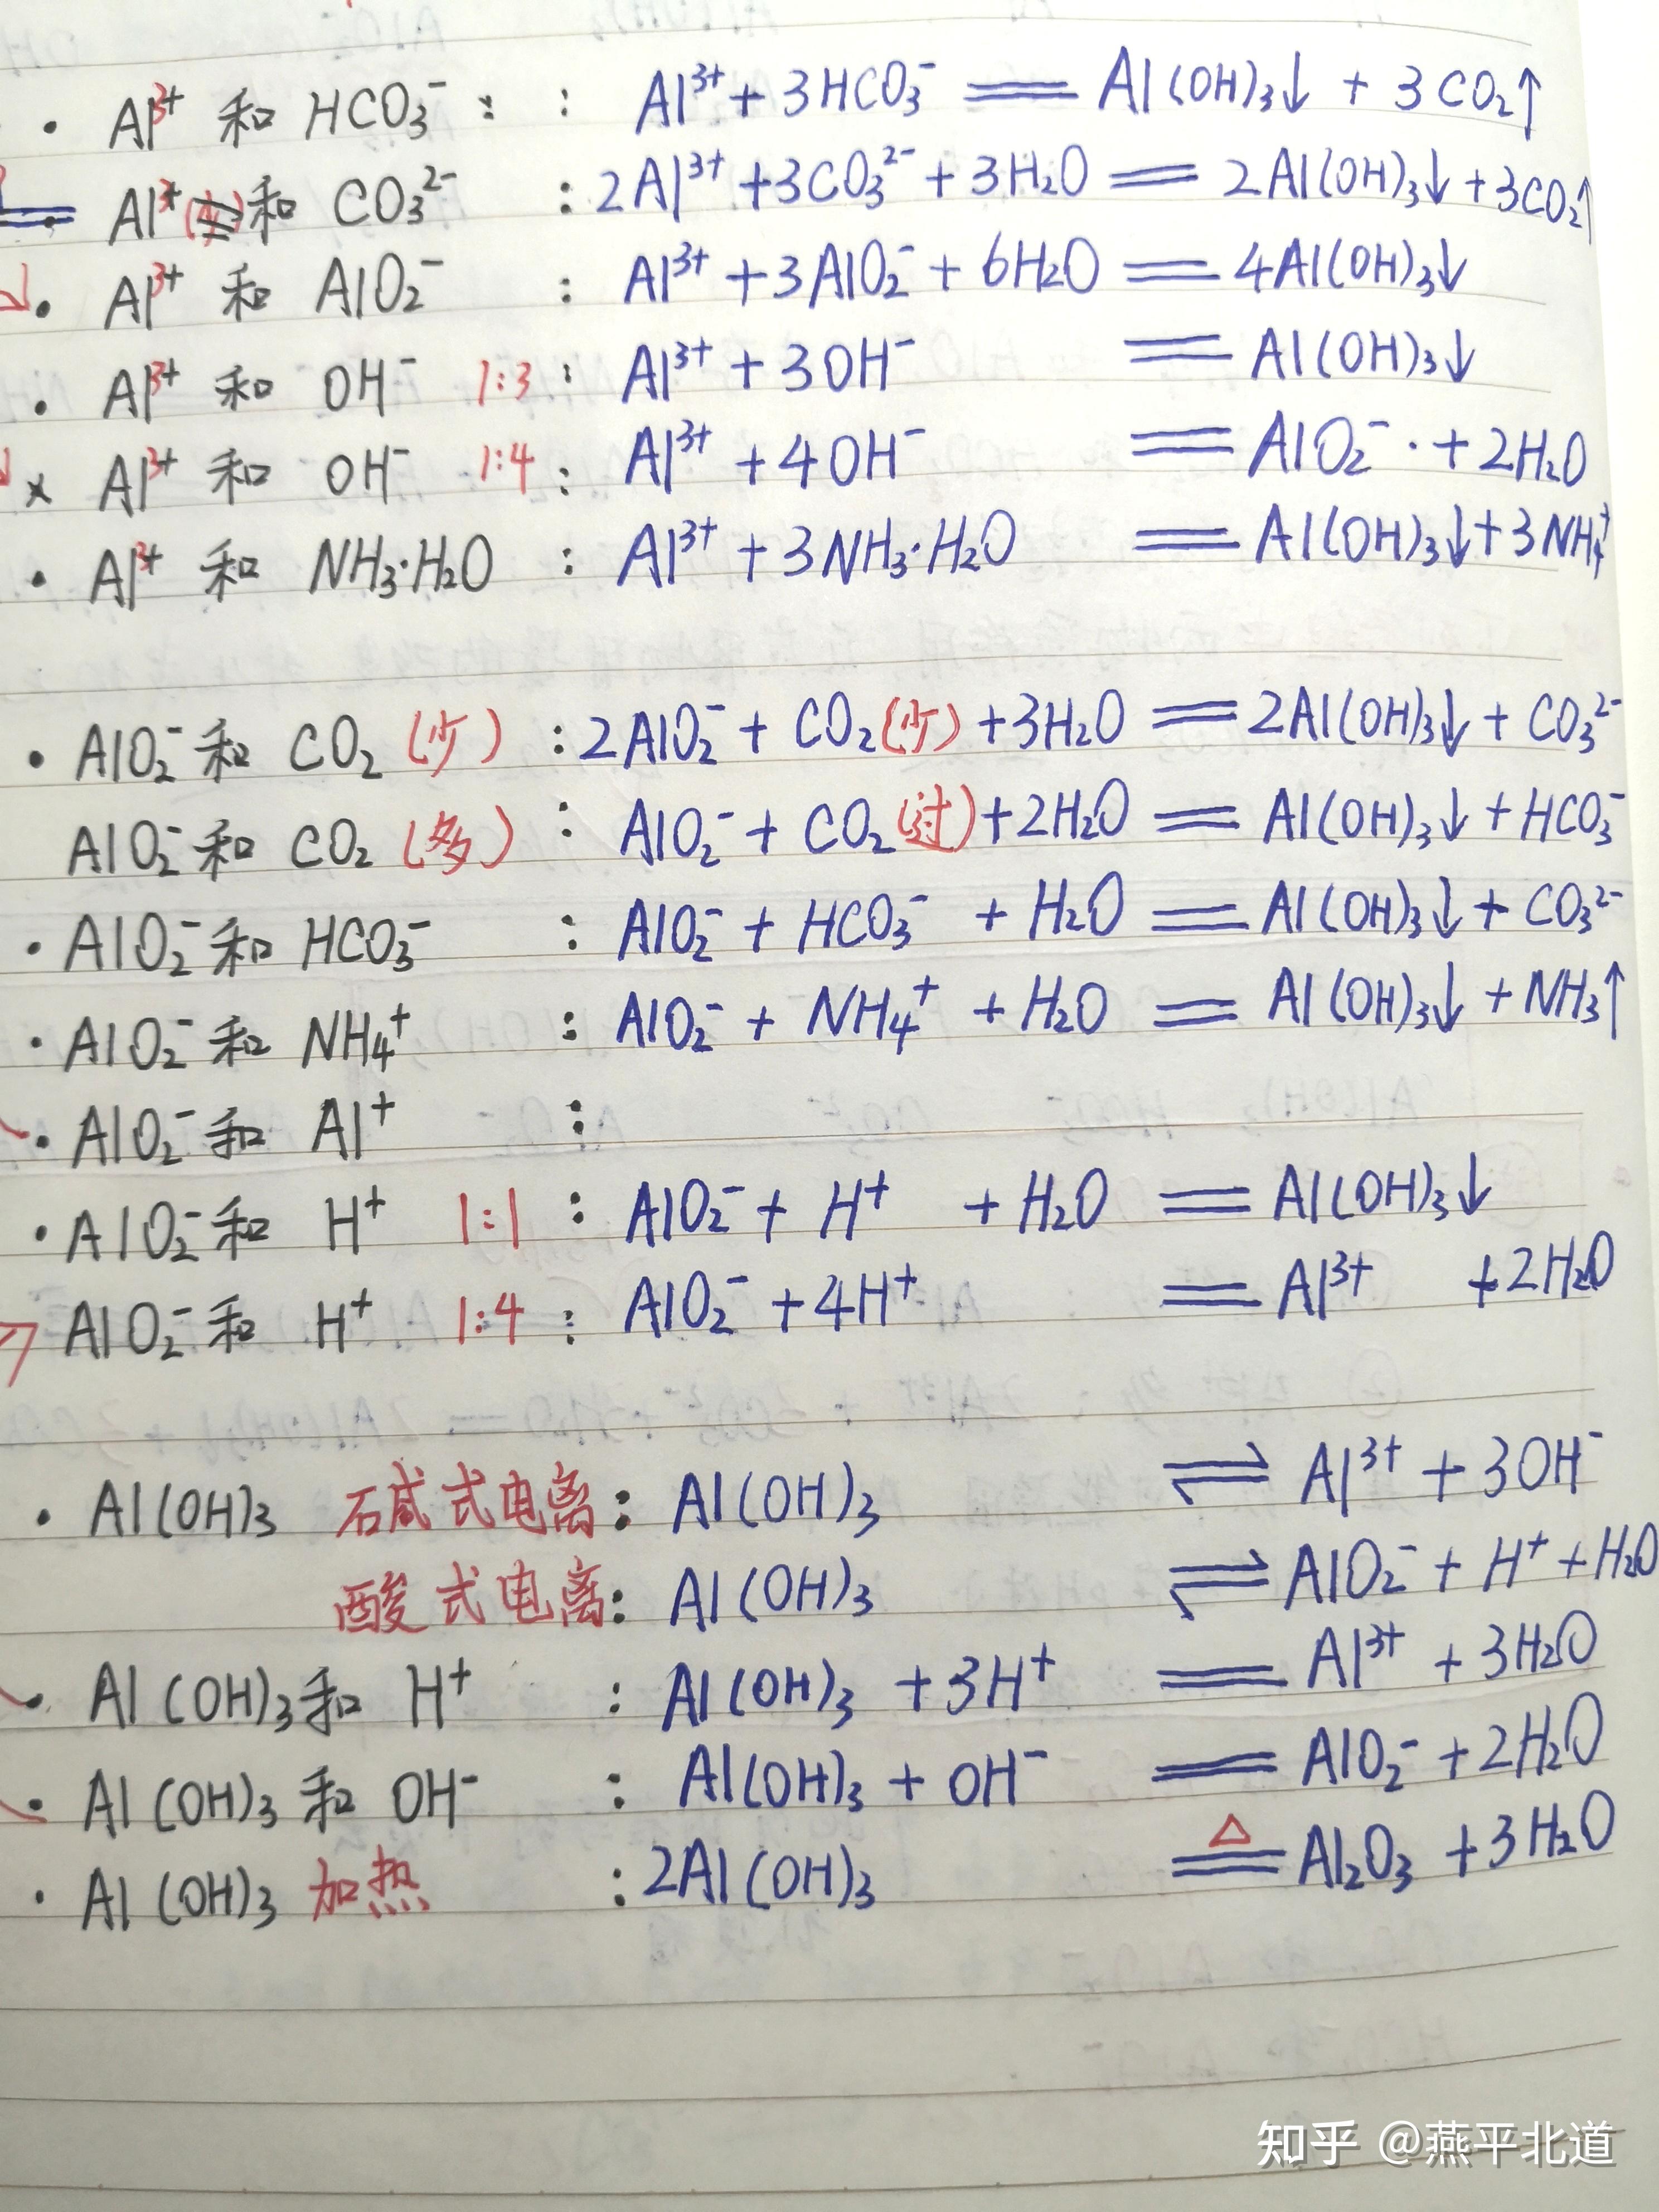 · Al³⁺ 和 HCO₃⁻ : : Al³⁺ + 3HCO₃⁻ == Al(OH)₃↓ + 3CO₂↑
· Al³⁺ (少) 和 CO₃²⁻ : 2Al³⁺ + 3CO₃²⁻ + 3H₂O == 2Al(OH)₃↓ + 3CO₂↑
· Al³⁺ 和 AlO₂⁻ : Al³⁺ + 3AlO₂⁻ + 6H₂O == 4Al(OH)₃↓
· Al³⁺ 和 OH⁻ 1:3 : Al³⁺ + 3OH⁻ == Al(OH)₃↓
× Al³⁺ 和 OH⁻ 1:4 : Al³⁺ + 4OH⁻ == AlO₂⁻ · + 2H₂O
· Al³⁺ 和 NH₃·H₂O : Al³⁺ + 3NH₃·H₂O == Al(OH)₃↓ + 3NH₄⁺
· AlO₂⁻ 和 CO₂ (少) : 2AlO₂⁻ + CO₂(少) + 3H₂O == 2Al(OH)₃↓ + CO₃²⁻
AlO₂⁻ 和 CO₂ (多) : AlO₂⁻ + CO₂(过) + 2H₂O == Al(OH)₃↓ + HCO₃⁻
· AlO₂⁻ 和 HCO₃⁻ : AlO₂⁻ + HCO₃⁻ + H₂O == Al(OH)₃↓ + CO₃²⁻
· AlO₂⁻ 和 NH₄⁺ : AlO₂⁻ + NH₄⁺ + H₂O == Al(OH)₃↓ + NH₃↑
· AlO₂⁻ 和 Al⁺ :
· AlO₂⁻ 和 H⁺ 1:1 : AlO₂⁻ + H⁺ + H₂O == Al(OH)₃↓
AlO₂⁻ 和 H⁺ 1:4 : AlO₂⁻ + 4H⁺ == Al³⁺ + 2H₂O
· Al(OH)₃ 碱式电离 : Al(OH)₃ ⇌ Al³⁺ + 3OH⁻
酸式电离 : Al(OH)₃ ⇌ AlO₂⁻ + H⁺ + H₂O
· Al(OH)₃ 和 H⁺ : Al(OH)₃ + 3H⁺ == Al³⁺ + 3H₂O
· Al(OH)₃ 和 OH⁻ : Al(OH)₃ + OH⁻ == AlO₂⁻ + 2H₂O
· Al(OH)₃ 加热 : 2Al(OH)₃ =△= Al₂O₃ + 3H₂O
知乎 @燕平北道